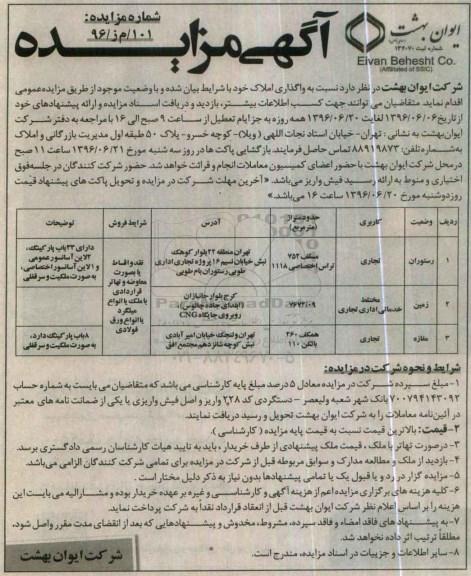 ایوان بهشت
(سهامی خاص)
شماره ثبت ۱۳۶۰۷۰
Eivan Behesht Co.
(Affiliated of SSIC)
آگهی مزایده
شماره مزایده:
۱۰۱/م ز/۹۶
شرکت ایوان بهشت در نظر دارد نسبت به واگذاری املاک خود با شرایط بیان شده و با وضعیت موجود از طریق مزایده عمومی
اقدام نماید. متقاضیان می توانند جهت کسب اطلاعات بیشتر، بازدید و دریافت اسناد مزایده و ارائه پیشنهادهای خود
از تاریخ ۱۳۹۶/۰۶/۰۶ لغایت ۱۳۹۶/۰۶/۲۰ همه روزه به جز ایام تعطیل از ساعت ۹ صبح الی ۱۶ با مراجعه به دفتر شرکت
ایوان بهشت به نشانی: تهران- خیابان استاد نجات اللهی (ویلا)- کوچه خسرو- پلاک ۵۰ طبقه اول مدیریت بازرگانی و املاک
به شماره تلفن: ۸۸۹۱۹۸۷۲ تماس حاصل فرمایند. بازگشایی پاکت ها در روز سه شنبه مورخ ۱۳۹۶/۰۶/۲۱ ساعت ۹ صبح
در محل شرکت ایوان بهشت با حضور اعضای کمیسیون معاملات انجام و قرائت خواهد شد. حضور شرکت کنندگان در جلسه فوق
اختیاری و منوط به ارائه رسید فیش واریز می باشد. « آخرین مهلت شرکت در مزایده و تحویل پاکت های پیشنهاد قیمت
روز دوشنبه مورخ ۱۳۹۶/۰۶/۲۰ ساعت ۱۶ می باشد.»
ردیف وضعیت کاربری حدود متراژ (متر مربع) آدرس شرایط فروش توضیحات
۱ رستوران تجاری مسقف ۷۵۲ تراس اختصاصی ۱۱۱۸ تهران منطقه ۲۲ بلوار کوهک نبش خیابان نسیم ۱۶ پروژه تجاری اداری طوبی رستوران بام طوبی دارای ۲۳ باب پارکینگ، ۲ لاین آسانسور عمومی و ۱ لاین آسانسور اختصاصی، به صورت ملکیت و سرقفلی
۲ زمین مختلط خدماتی اداری تجاری ۷۶۷۳/۰۹ کرج بلوار جانبازان (ابتدای جاده چالوس) روبروی جایگاه CNG
۳ مغازه تجاری همکف ۲۶۰ بالکن ۱۱۰ تهران ولنجک خیابان امیر آبادی نبش کوچه شانزدهم مجتمع افق ۸ باب پارکینگ دارد، به صورت ملکیت و سرقفلی
نقد و اقساط یا بصورت معاوضه و تهاتر قراردادی با ملک یا انواع میلگرد یا انواع ورق فولادی
شرایط و نحوه شرکت در مزایده:
۱- مبلغ سپرده شرکت در مزایده معادل ۵ درصد مبلغ پایه کارشناسی می باشد که متقاضیان می بایست به شماره حساب
۷۰۰۷۹۴۱۴۳۰۹۲ بانک شهر شعبه ولیعصر - دستگردی کد ۲۲۸ واریز و اصل فیش واریزی یا یکی از ضمانت نامه های معتبر
در آئین نامه معاملات را به شرکت ایوان بهشت تحویل و رسید دریافت نمایند.
۲- قیمت: بالاترین قیمت نسبت به قیمت پایه مزایده (کارشناسی).
۳- در صورت تهاتر با ملک، قیمت ملک پیشنهادی از طرف خریدار، باید به تایید هیات کارشناسان رسمی دادگستری برسد.
۴- بازدید از ملک و مطالعه مدارک و سوابق مربوطه قبل از شرکت در مزایده برای تمامی شرکت کنندگان الزامی می باشد.
۵- مزایده گزار در رد و یا قبول یک یا تمامی پیشنهادها بدون نیاز به ذکر دلیل مختار است.
۶- کلیه هزینه های برگزاری مزایده اعم از هزینه آگهی و کارشناسی و غیره بر عهده خریدار بوده و مشارالیه می بایست این
هزینه را بر اساس اعلام نظر شرکت ایوان بهشت قبل از انعقاد قرارداد نقداً به شرکت پرداخت نماید.
۷- به پیشنهادهای فاقد امضاء و فاقد سپرده، مشروط، مخدوش و پیشنهادهایی که بعد از انقضای مدت مقرر واصل شود،
مطلقاً ترتیب اثر داده نخواهد شد.
۸- سایر اطلاعات و جزییات در اسناد مزایده، مندرج است.
شرکت ایوان بهشت